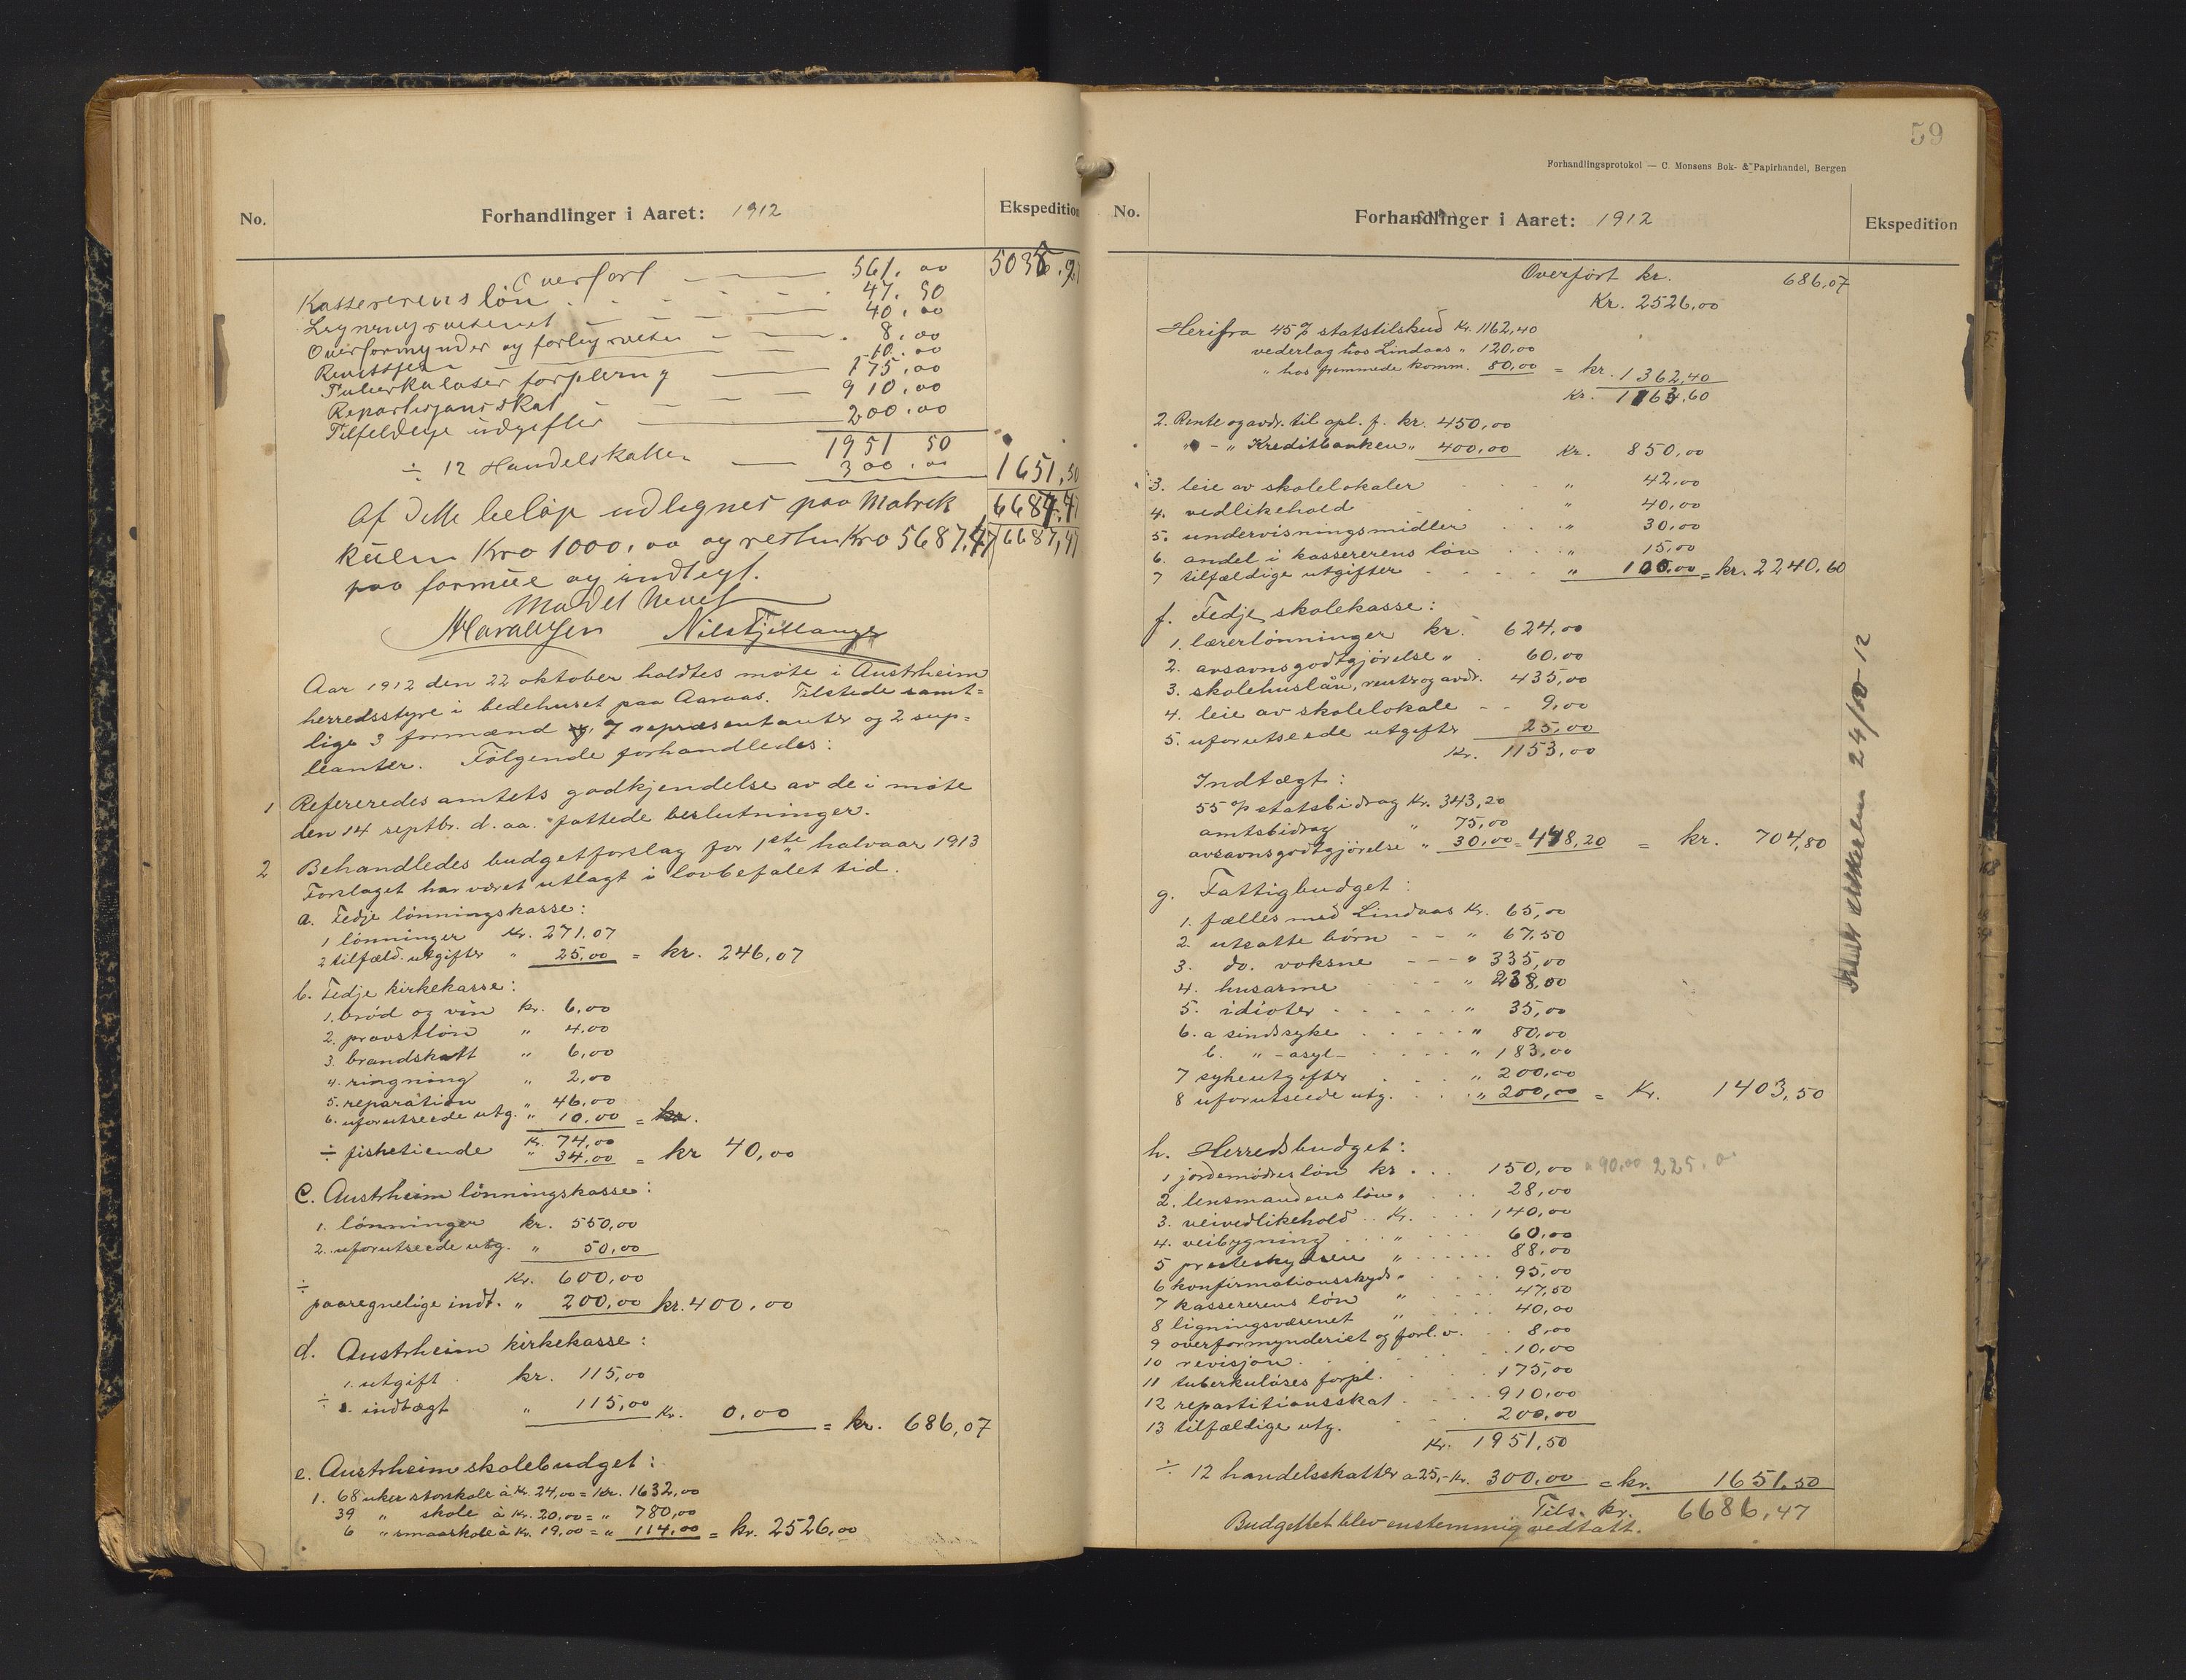 No. Forhandlinger i Aaret: 1912 Ekspedition
Overført 561.00 5035.97
Kassererens løn 47.50
Ligningsvæsenet 40.00
Overformynder og forligsvæsen 8.00
Revissjon 10.00
Tuberkuløses forpleing 175.00
Repartisjonsskat 910.00
Tilfeldige udgifter 200.00
1951 50
÷ 12 Handelskatter 300.00 1651,50
Af dette beløp udlignes paa Matrik 6687,47
külen Kro 1000,00 og resten Kro 5687,47 6687,47
paa formüe og indtegt.
Mødet hevet
Nils Fjellanger
Aar 1912 den 22 oktober holdtes møte i Austrheim
herredsstyre i bedehuset paa Aaraas. Tilstede samt=
lige 3 formænd og 7 repræsentanter og 2 sup=
leanter. Følgende forhandledes:
1 Refereredes amtets godkjendelse av de i møte
den 14 septbr. d. aa. fattede beslutninger.
2 Behandledes budgetforslag for 1ste halvaar 1913
Forslaget har været utlagt i lovbefalet tid.
a. Fedje lønningskasse:
1 lønninger Kr. 271,07
2 tilfæld. utgifter " 25,00 = kr. 246,07
b. Fedje kirkekasse:
1. brød og vin kr. 6,00
2. provstløn " 4,00
3. brandskatt " 6,00
4. ringning " 2,00
5. reparation " 46,00
6. uforutseede utg. " 10,00 = kr.
Kr. 74,00
÷ fisketiende " 34,00 = kr 40,00
c. Austrheim lønningskasse:
1. lønninger kr. 550,00
2. uforutseede utg. " 50,00
Kr. 600,00
÷
paaregnelige indt. " 200,00 kr. 400,00
d. Austrheim kirkekasse:
1. utgift kr. 115,00
÷ indtægt " 115,00 Kr. 0,00 = kr. 686,07
e. Austrheim skolebudget:
1. 68 uker storskole à Kr. 24,00 = Kr. 1632,00
39 " skole à Kr. 20,00 = " 780,00
6 " smaaskole à Kr. 19,00 = " 114,00 = kr. 2526,00
59
Forhandlingsprotokol — C. Monsens Bok- & Papirhandel, Bergen
No. Forhandlinger i Aaret: 1912 Ekspedition
Overført kr. 686,07
Kr. 2526,00
Herifra 45% statstilskud Kr. 1162,40
vederlag hos Lindaas " 120,00
" hos fremmede komm. 80,00 = kr. 1362,40
Kr. 1163,60
2. Rente og avdr. til opl. f. kr. 450,00
" - " Kreditbanken " 400,00 Kr. 850,00
3. leie av skolelokaler " 42,00
4. vedlikehold " 40,00
5. undervisningsmidler " 30,00
6. andel i kassererens løn " 15,00
7 tilfældige utgifter " 100,00 = kr. 2240,60
f. Fedje skolekasse:
1. lærerlønninger kr. 624,00
2. avsavnsgodtgjørelse " 60,00
3. skolehuslån, renter og avdr. 435,00
4. leie av skolelokale - - 9,00
5. uforutseede utgifter 25,00
Kr. 1153,00
Indtægt:
55% statsbidrag Kr. 343,20
amtsbidrag " 75,00
avsavnsgodtgjørelse " 30,00 = 448,20 = kr. 704,80
g. Fattigbudget:
1. fælles med Lindaas Kr. 65,00
2. utsatte børn - - " 67,50
3. do. voksne - - - " 335,00
4. husarme " 238,00
5. idioter " 35,00
6. a sindssyke " 80,00
b. " - asyl - " 183,00
7 sykeutgifter " 200,00
8 uforutseede utg. " 200,00 = Kr. 1403,50
h. Herredsbudget:
1 jordemødres løn kr. 150,00 a 90,00 225,0
2. lensmandens løn " 28,00
3. veivedlikehold Kr. 140,00
4. veibygning " 60,00
5 presteskydsen " 88,00
6 konfirmationsskyds " 95,00
7 kassererens løn " 47,50
8 ligningsvæsenet " 40,00
9 overformynderiet og forl. v. 8,00
10 revisjon 10,00
11 tuberkuløses forpl. 175,00
12 repartitionsskat 910,00
13 tilfældige utg. 200,00
Kr. 1951,50
÷ 12 handelsskatter a 25,- Kr. 300,00 = kr. 1651,50
Tils. kr. 6686,47
Budgettet blev enstemmig vedtatt.
24/10-12